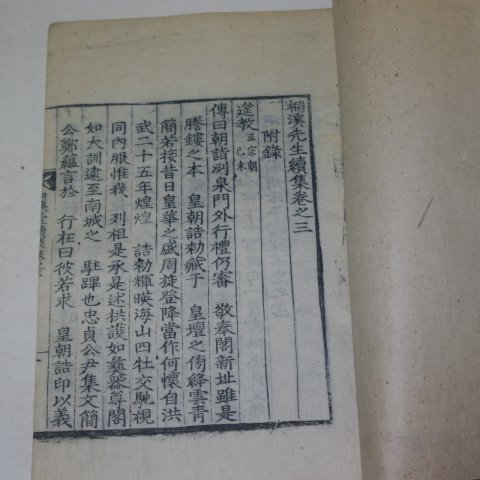 桐溪先生續集卷之三
附錄
筵教 正宗朝己未
傳曰朝詣冽泉門外行禮仍審 敬奉閣新址雖是
謄鏤之本 皇朝誥勅藏于 皇壇之傍絳雲靑
簡若接昔日皇華之盛周旋登降當作何懷自洪
武二十五年煌煌 誥勅輝暎海山四牡交馳視
同內服惟我 列祖是承是述拱護如彝器尊閣
如大訓逮至南城之 駐蹕也忠貞公尹集文簡
公鄭蘊言於 行在曰彼若求 皇朝誥印以義